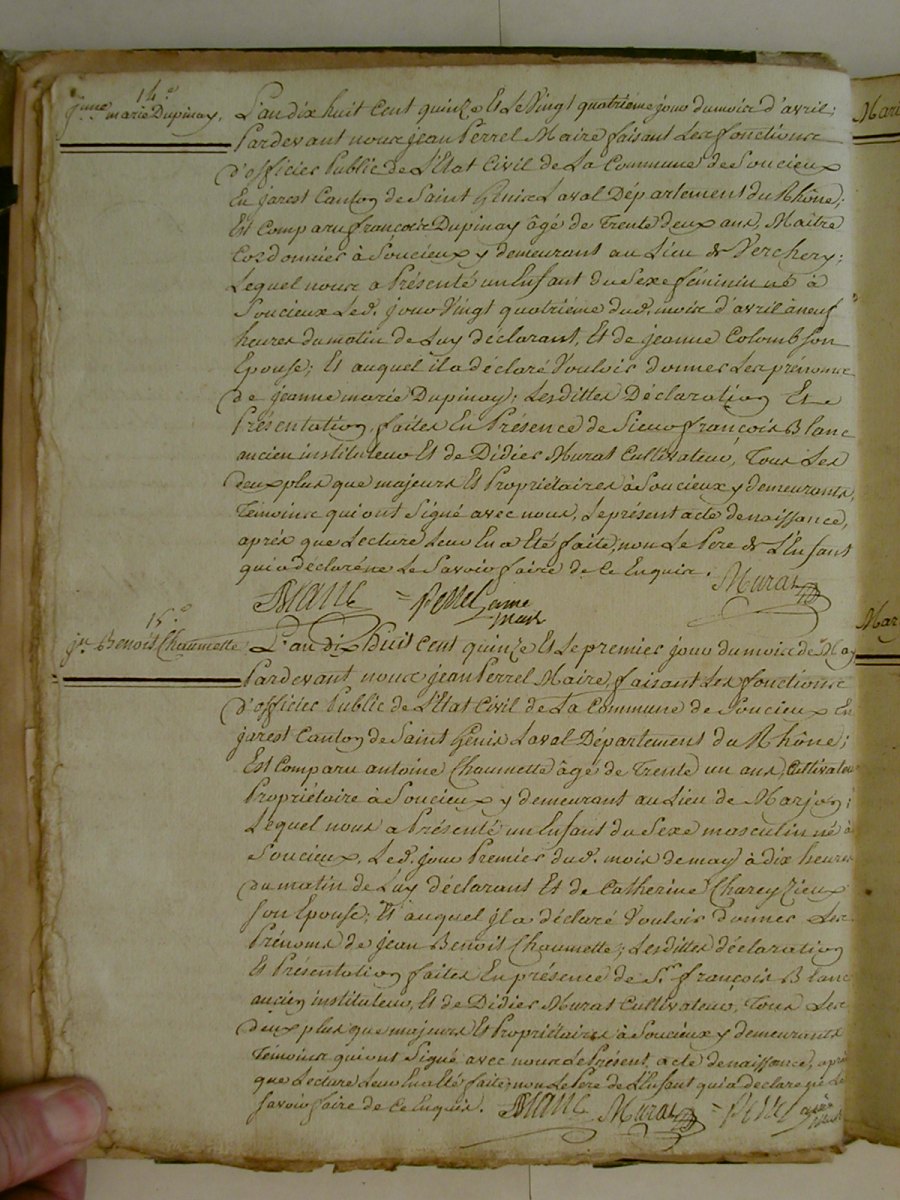 14.e
j.nne marie Dupinay.
L'an dix huit cent quinze Et Le Vingt quatrième jour du mois d'avril;
Pardevant nous jean Perrel Maire faisant Les fonctions
d'officier Public de L'État Civil de La Commune de Soucieux
En jarest Canton de Saint Genis Laval Département du Rhône;
Est Comparu françois Dupinay âgé de Trente deux ans, Maitre
Cordonnier à Soucieux y demeurant au Lieu de Verchery;
Lequel nous a Présenté un Enfant du Sexe féminin né à
Soucieux Led. jour Vingt quatrième dud. mois d'avril à neuf
heures du matin de Luy déclarant, Et de jeanne Colomb son
Epouse; Et auquel il a déclaré Vouloir donner Les prénoms
de jeanne marie Dupinay; Lesdittes Déclaration Et
Présentation faites En Présence de Sieur françois Blanc
ancien instituteur Et de Didier Murat Cultivateur, Tous Les
deux plus que majeurs Et Propriétaires à Soucieux y demeurants,
Témoins qui ont Signé avec nous, Le présent acte de naissance,
après que Lecture Leur En a Eté faite, non Le Pere de L'Enfant
qui a déclaré ne Le Savoir faire de Ce Enquis. Murat
Blanc Perrel maire
15.e
jn. Benoit Chaumette
L'an dix huit cent quinze Et Le premier jour du mois de May
Pardevant nous jean Perrel Maire, faisant Les fonctions
d'officier Public de L'État Civil de La Commune de Soucieux En
jarest Canton de Saint Genis Laval Département du Rhône;
Est Comparu antoine Chaumette âgé de Trente un ans, Cultivateur
Propriétaire à Soucieux y demeurant au Lieu de Marjon;
Lequel nous a Présenté un Enfant du Sexe masculin né à
Soucieux, Led. jour Premier dud. mois de may à dix heures
du matin de Luy déclarant Et de Catherine Chareyzieux
son Epouse; Et auquel jl a déclaré Vouloir donner Les
Prénoms de jean Benoit Chaumette; Lesdittes déclaration
Et Présentation faites En présence de Sr. françois Blanc
ancien instituteur, Et de Didier Murat Cultivateur, Tous Les
deux plus que majeurs Et Propriétaires à Soucieux y demeurants
Témoins qui ont Signé avec nous Le Présent acte de naissance, après
que Lecture Leur En a Eté faite, non Le Pere de L'Enfant qui a déclaré ne Le
Savoir faire de Ce Enquis. Blanc Murat Perrel maire